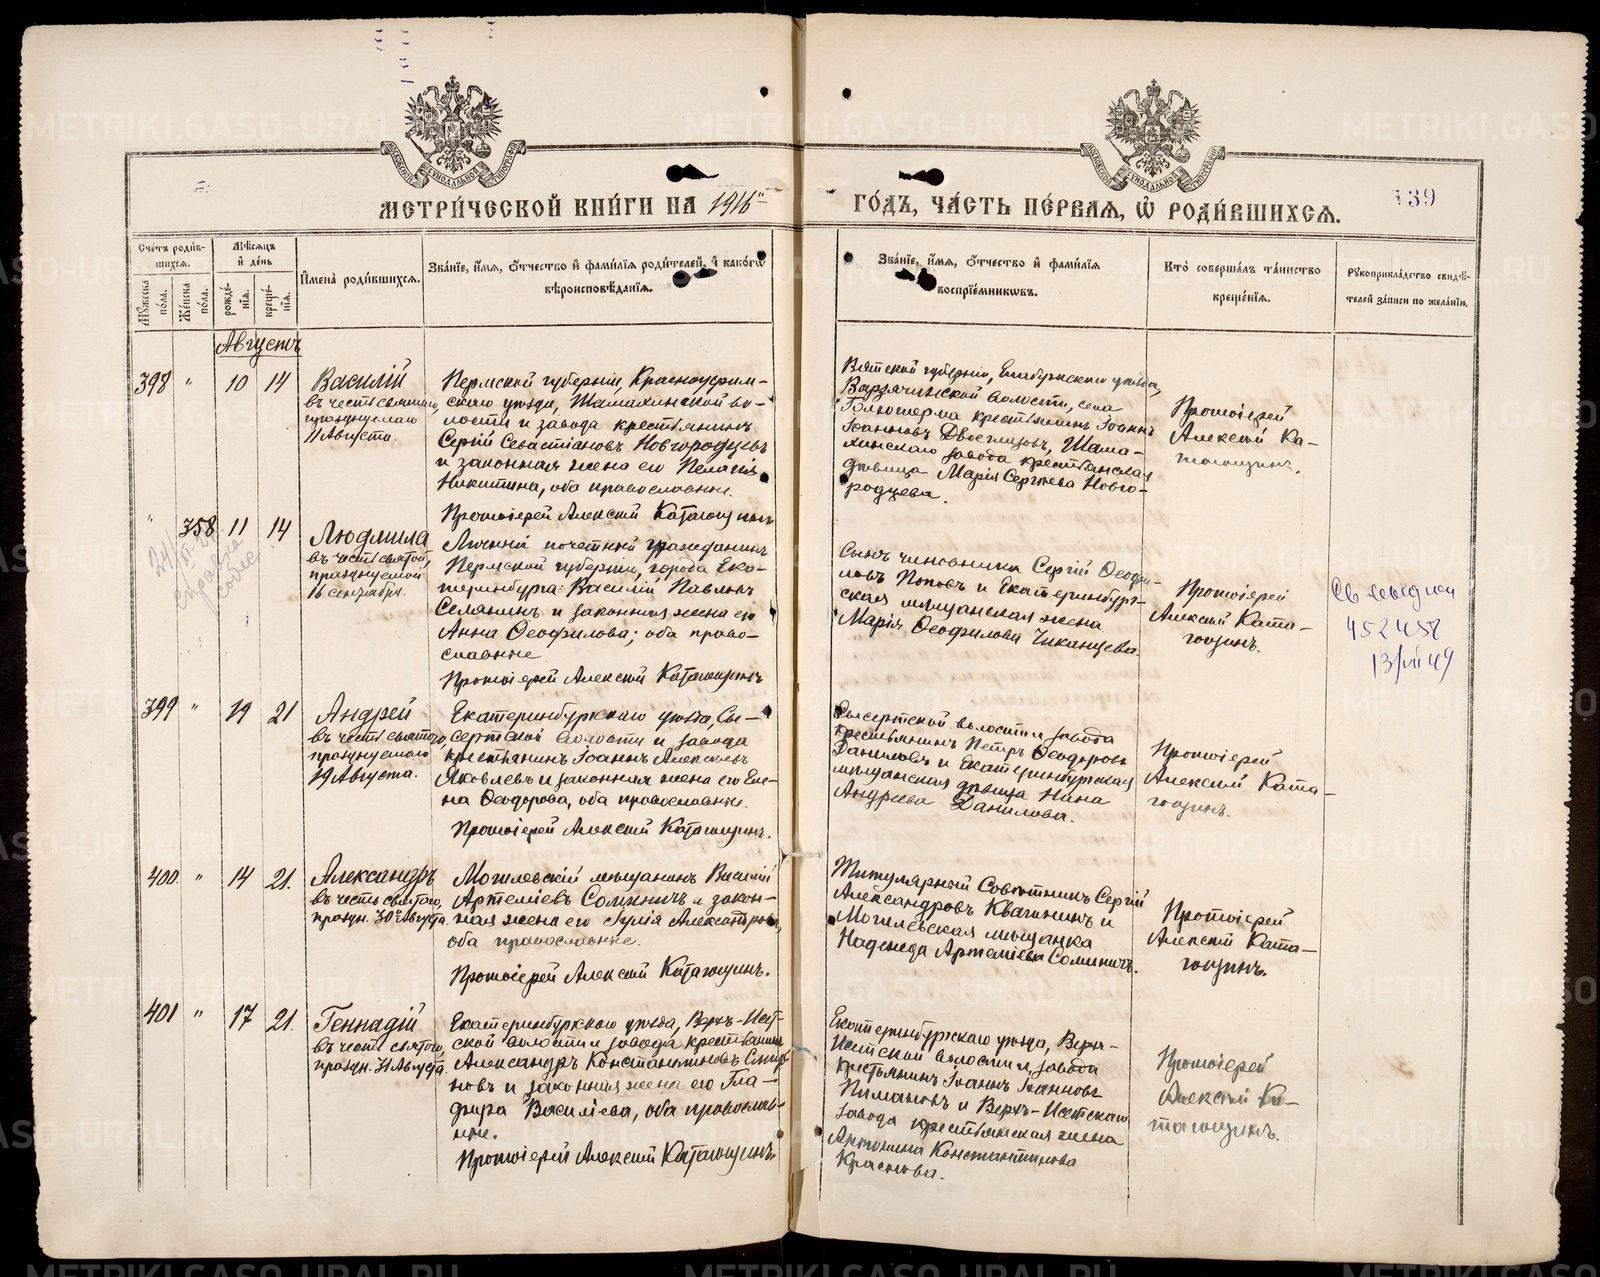 МЕТРИ́ЧЕСКОЙ КНИ́ГИ НА 1916й
ГО́ДЪ, ЧА́СТЬ ПЕ́РВАЯ, Ѿ РОДИ́ВШИХСЯ.
139
Сче́тъ роди́в-
шихся.
Му́жеска по́ла.
Же́нска по́ла.
Мѣ́сяцъ и де́нь
рожде́-
нїя.
креще́-
нїя.
И́мена̀ роди́вшихся.
Зва́нїе, и́мя, о́тчество и фами́лїя роди́телей, и како́гѡ
вѣроисповѣ́данїя.
Зва́нїе, и́мя, о́тчество и фами́лїя
воспрїе́мникѡвъ.
Кто̀ соверша́лъ та́инство
креще́нїя.
Рукоприкла́дство свидѣ́-
телей за́писи по жела́нїю.
Августъ
398 " 10 14
Василій
въ честь святаго,
празднуемаго
11 Августа.
Пермской губерніи, Красноуфим-
скаго уѣзда, Шемахинской во-
лости и завода крестьянинъ
Сергій Севастіановъ Новгородцевъ
и законная жена его Пелагія
Никитина, оба православные.
Протоіерей Алексій Катагощинъ
Вятской губерніи, Елабужскаго уѣзда,
волости, села
крестьянинъ Іоаннъ
Іоанновъ Шема-
хинскаго завода крестьянская
дѣвица Марія Сергѣева Новго-
родцева.
Протоіерей
Алексій Ка-
тагощинъ.
" 358 11 14
Людмила
въ честь святой,
празднуемой
16 сентября.
Личный почетный гражданинъ
Пермской губерніи, города Ека-
теринбурга Василій Павловъ
Семянинъ и законная жена его
Анна Ѳеофилова; оба право-
славные
Протоіерей Алексій Катагощинъ
Сынъ чиновника Сергій Ѳеофи-
ловъ Поповъ и Екатеринбург-
ская мѣщанская жена
Марія Ѳеофилова Чиканцева.
Протоіерей
Алексій Ката-
гощинъ.
452458
13/VII 49
399 " 19 21
Андрей
въ честь святого,
празднуемаго
19 Августа.
Екатеринбургскаго уѣзда, Сы-
сертской волости и завода
крестьянинъ Іоаннъ Алексѣевъ
Яковлевъ и законная жена его Еле-
на Ѳеодорова, оба православные.
Протоіерей Алексій Катагощинъ.
Сысертской волости и завода
крестьянинъ Петръ Ѳеодоровъ
Даниловъ и Екатеринбургская
мѣщанская дѣвица Нина
Андреева Данилова.
Протоіерей
Алексій Ката-
гощинъ.
400 " 14 21.
Александръ
въ честь святаго,
праздн. 30го Августа
Могилевскій мѣщанинъ Василій
Артеміевъ Соминичъ и закон-
ная жена его Іулія Александрова,
оба православные.
Протоіерей Алексій Катагощинъ.
Титулярный Совѣтникъ Сергій
Александровъ Квашнинъ и
Могилевская мѣщанка
Надежда Артеміева Соминичъ.
Протоіерей
Алексій Ката-
гощинъ.
401 " 17 21.
Геннадій
въ честь святого,
праздн. 31 Августа.
Екатеринбургскаго уѣзда, Верхъ-Исет-
ской волости и завода крестьянинъ
Александръ Константиновъ Смир-
новъ и законная жена его Гла-
фира Василіева, оба православ-
ные.
Протоіерей Алексій Катагощинъ.
Екатеринбургскаго уѣзда, Верхъ-
Исетской волости и завода
крестьянинъ Іоаннъ Іоанновъ
Пимановъ и Верхъ-Исетскаго
завода крестьянская жена
Антонина Константинова
Краснова.
Протоіерей
Алексій Ка-
тагощинъ.